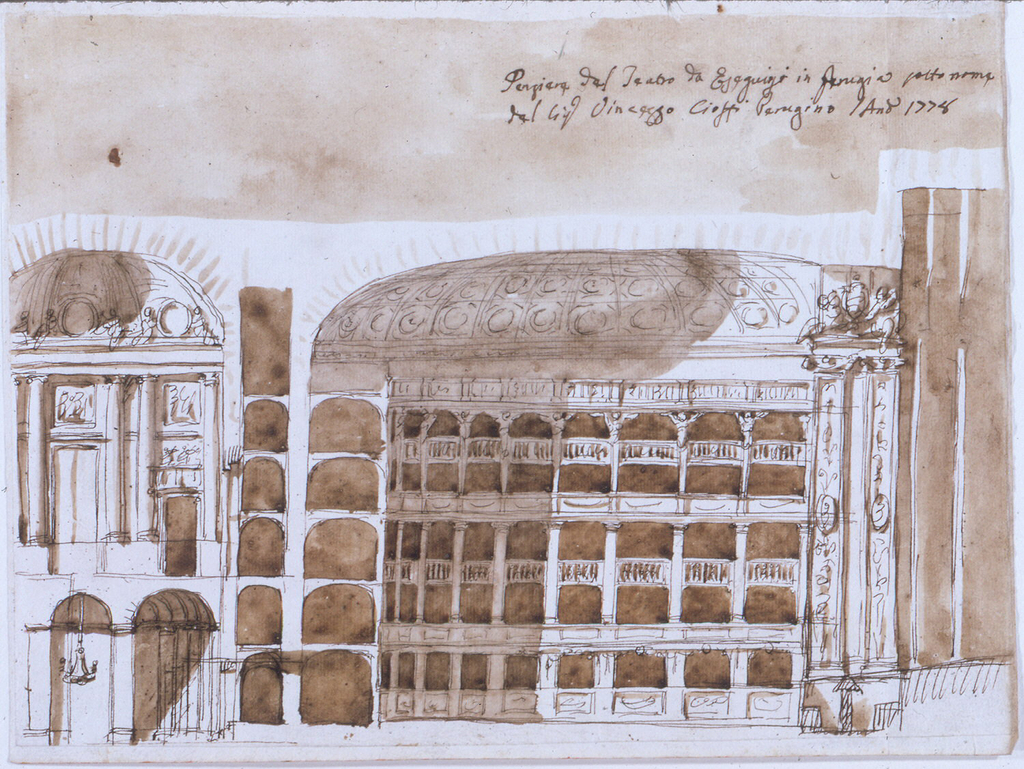 Pensiere del Teatro da Eseguirsi in Perugia sotto nome
del Sig Vincenzo Cioffi Perugino / Anō 1778